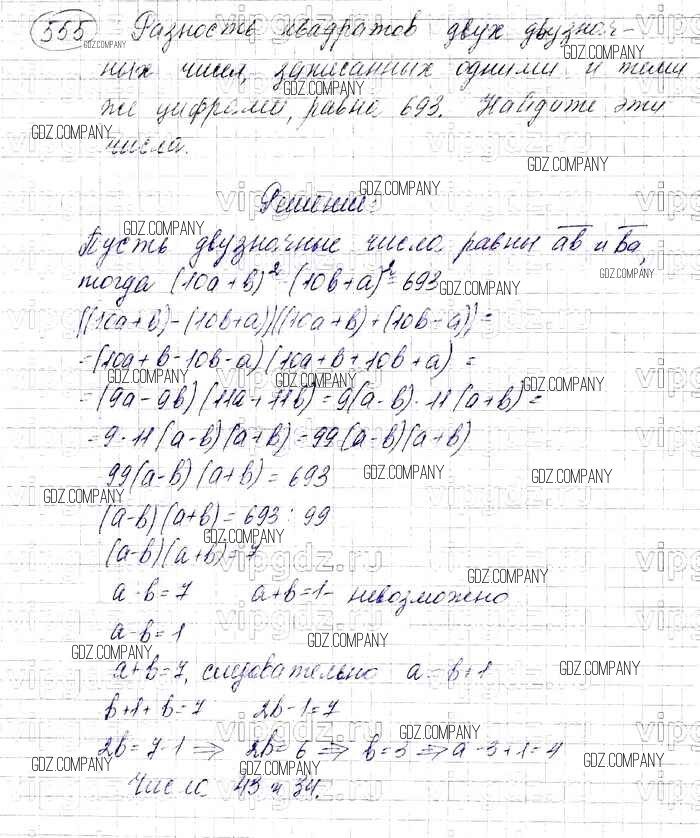 555 Разность квадратов двух двузнач-
ных чисел, записанных одними и теми
же цифрами, равна 693. Найдите эти
числа.
Решение:
Пусть двузначные числа равны ab и ba,
тогда (10a+b)² - (10b+a)² = 693
((10a+b)-(10b+a))((10a+b)+(10b+a)) =
= (10a+b-10b-a)(10a+b+10b+a) =
= (9a-9b)(11a+11b) = 9(a-b)·11(a+b) =
= 9·11(a-b)(a+b) = 99(a-b)(a+b)
99(a-b)(a+b) = 693
(a-b)(a+b) = 693:99
(a-b)(a+b) = 7
a-b=7 a+b=1 - невозможно
a-b=1
a+b=7, следовательно a=b+1
b+1+b=7 2b-1=7
2b=7-1 ⇒ 2b=6 ⇒ b=3 ⇒ a=3+1=4
Числа 43 и 34.